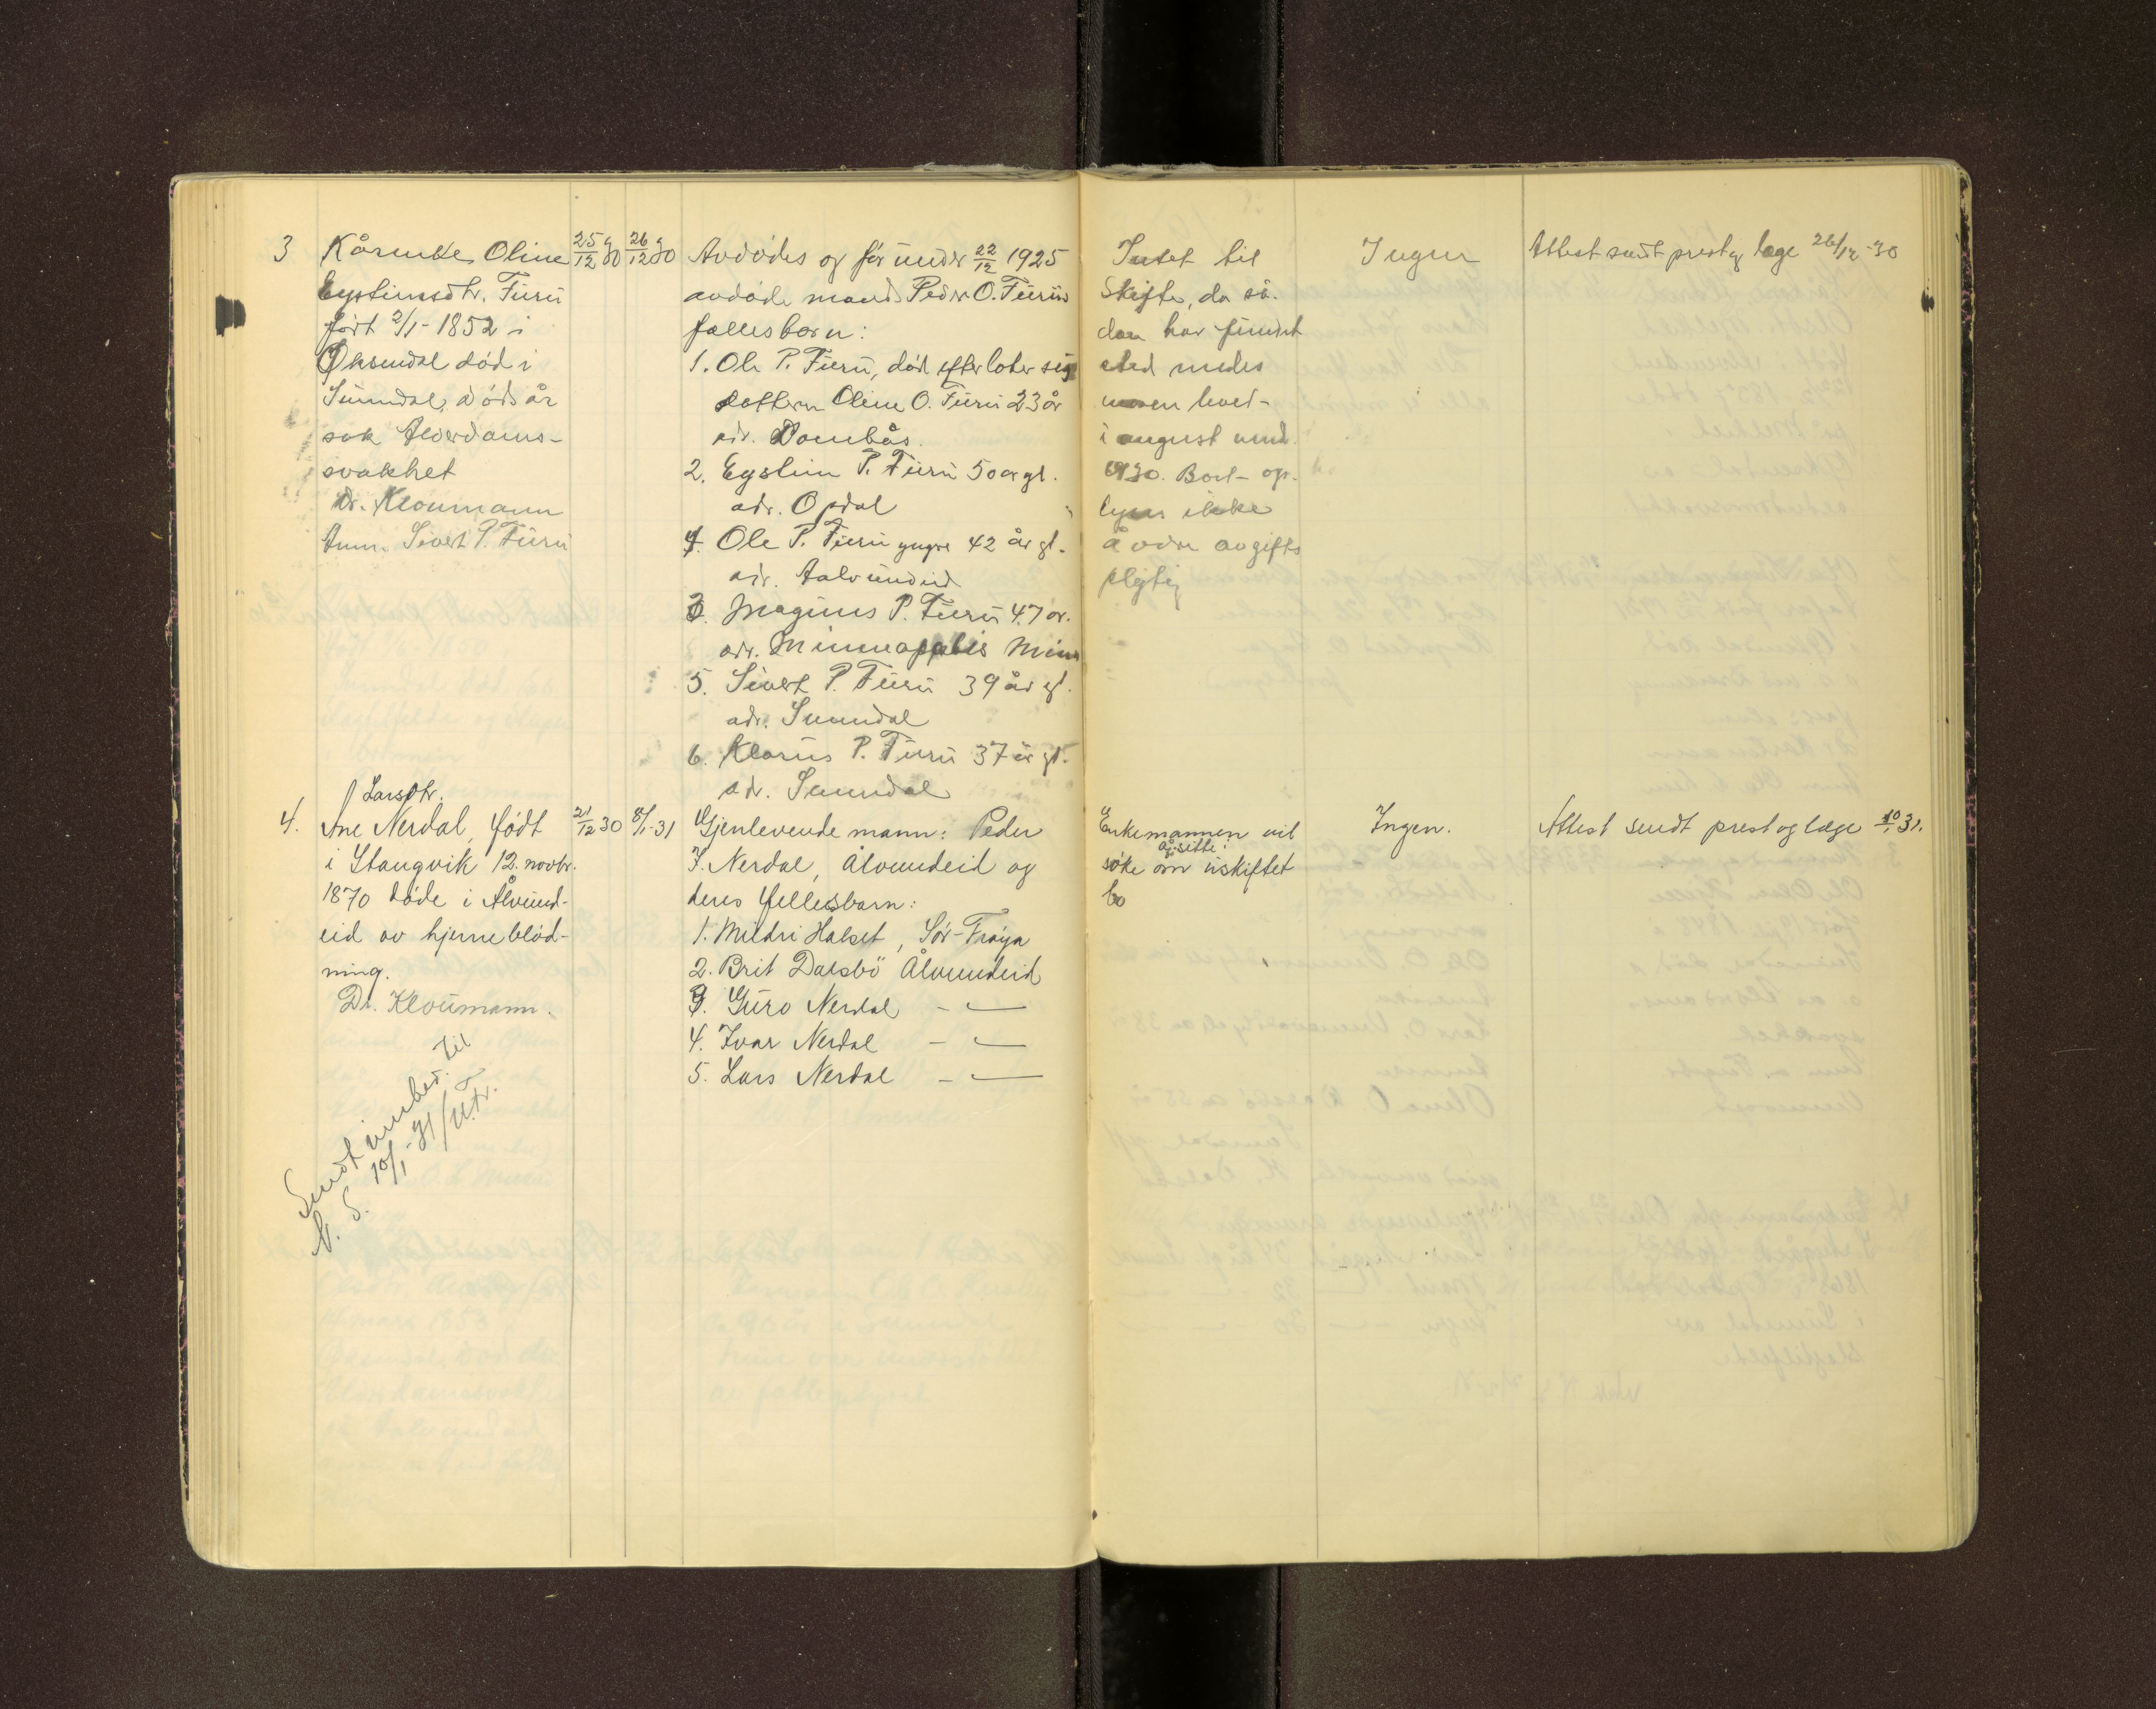 3 Kårmke Oline 25/12 30 26/12 30
Eystinsdtr. Furu
født 2/1 - 1852 i
Øksendal død i
Sunndal, dødsår
sak Alderdoms-
svakhet
Dr. Kloumann
Anm. Sivert P. Furu
Avdødes og før under 22/12 1925
avdøde mand Peder O. Furus
fællesbarn:
1. Ole P. Furu, død efterlater sig
datteren Oline O. Furu 23 år
adr. Dombås.
2. Eystein P. Furu 50 år gl.
adr. Opdal
4. Ole P. Furu yngre 42 år gl.
adr. Aalvundeid
3. Magnus P. Furu 47 år.
adr. Minneapolis Minn
5. Sivert P. Furu 39 år gl.
adr. Sunndal
6. Klarus P. Furu 37 år gl.
adr. Sunndal
Intet til
Skifte, da så-
dan har fundet
sted medes
levet-
i august mnd.
1930. Boet op-
lyses ikke
å være avgifts
pligtig
Ingen
Attest sendt prest og læge 26/12-30
Larsdtr.
4. Ane Nerdal, født 21/12 30 8/1-31
i Stangvik 12. novbr.
1870 døde i Ålvund-
eid av hjerneblød-
ning.
Dr. Kloumann.
Sendt innber. til
N. S. 10/1-31/U.Tr.
Gjenlevende mann: Peder
I. Nerdal, Ålvundeid og
deres fellesbarn:
1. Mildri Halset, Sør-Frøya
2. Brit Dalsbö Ålvundeid
3. Guro Nerdal - —
4. Ivar Nerdal - —
5. Lars Nerdal - —
Enkemannen vil
å sitte i
søke om uskiftet
bo
Ingen.
Attest sendt prest og læge 10/1 31.